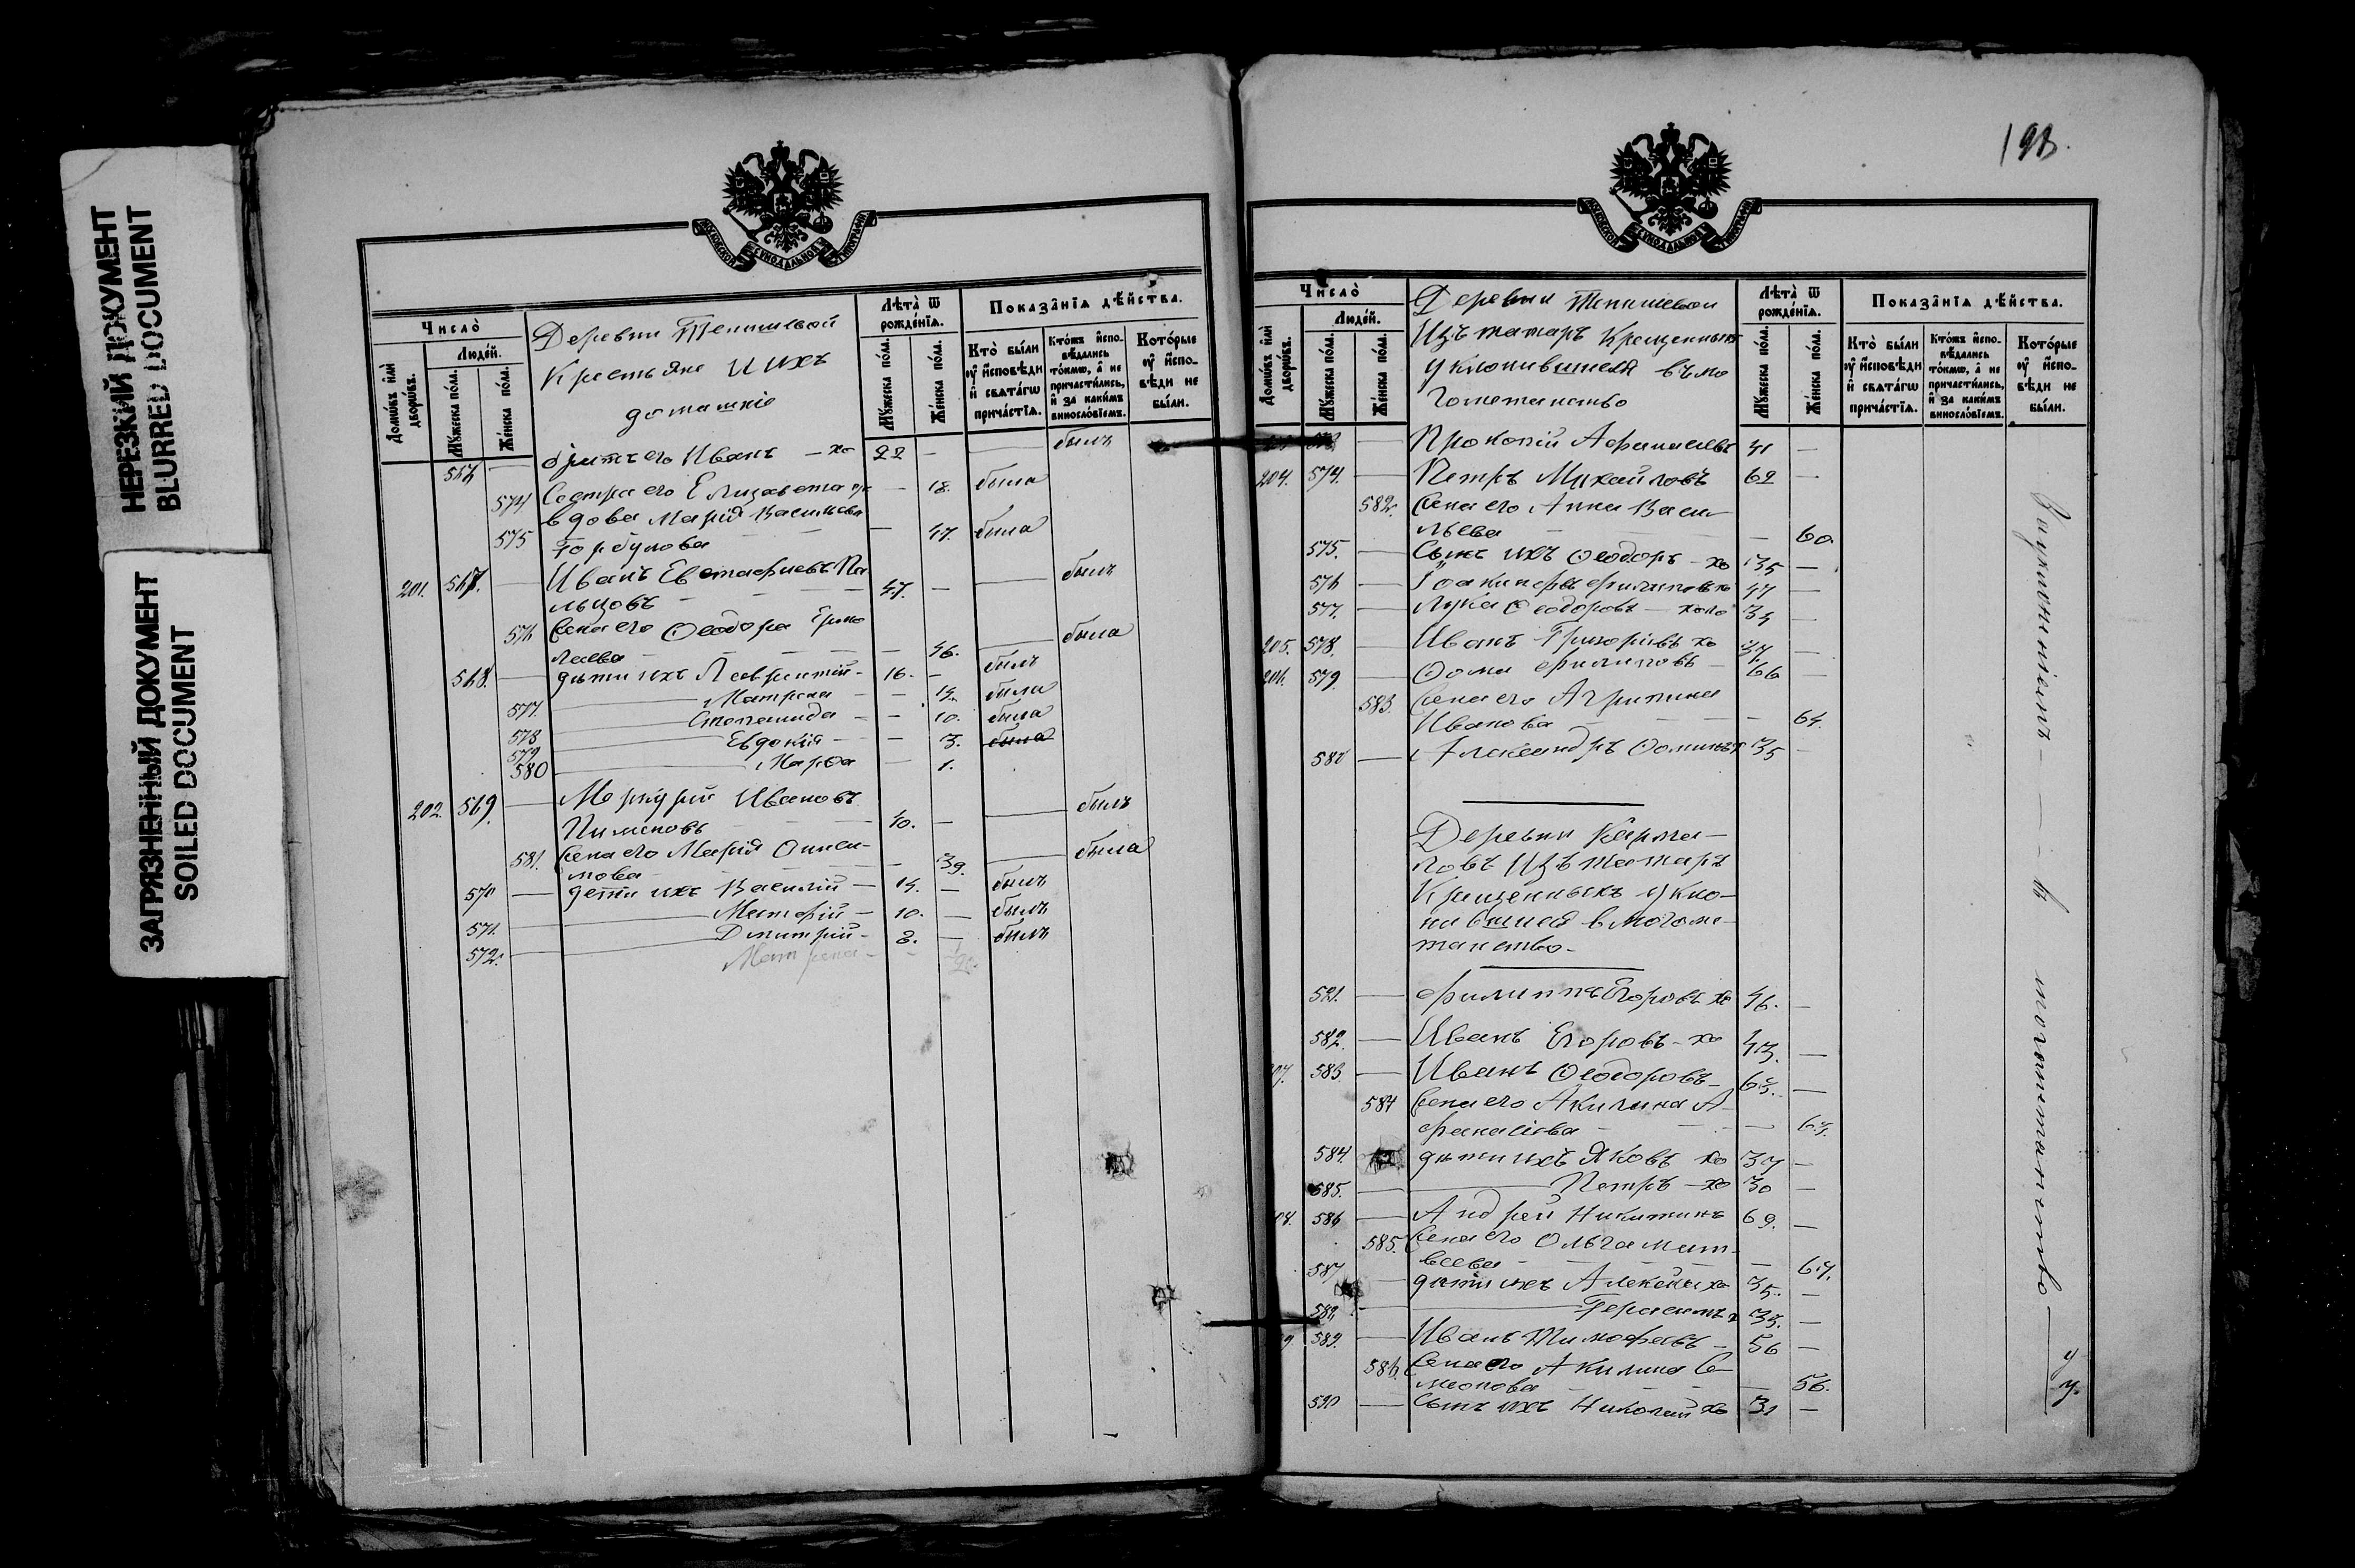 НЕРЕЗКИЙ ДОКУМЕНТ
BLURRED DOCUMENT
ЗАГРЯЗНЕННЫЙ ДОКУМЕНТ
SOILED DOCUMENT
МОСКОВСКОЙ СѴНОДАЛЬНОЙ ТИПОГРАФІИ
Число̀
Людѐй.
Домѡ́въ и҆лѝ дворѡ́въ.
Мꙋ́жеска по́ла.
Же́нска по́ла.
Деревни
Крестьяне и ихъ
домашніе
Лѣ́та ѿ рожде́нїѧ.
Мꙋ́жеска по́ла.
Же́нска по́ла.
Показа̑нїѧ дѣ́йства.
Кто̀ бы́ли оу҆ и҆сповѣ́ди и҆ свѧта́гѡ прича́стїѧ.
Кто́жъ и҆спо-вѣ́дались то́кмѡ, а҆ не причасти́лись, и҆ за каки́мъ винословїемъ.
Кото́рые оу҆ и҆спо-вѣ́ди не бы́ли.
братъ его Иванъ - хо 22 - былъ
574 Сестра его Елизавета - 18. была
575 вдова Марія Васильева
Горбунова - 47. была
201. 567. Иванъ Евстафіевъ Па
льцовъ 47. - былъ
576 Жена его Ѳеодора Ермо
лаева - 46. была
568. дѣти ихъ Лаврентій - 16. - былъ
577. Матрона - была
578 Степанида - 10. была
579 Евдокія - 3. была
580 Марѳа - 1.
202. 569. Меркурій Ивановъ
Пименовъ 40. - былъ
581. Жена его Марія Ониси-
мова - 39. была
570 дѣти ихъ Василій - 14. - былъ
571. Матѳій - 10. - былъ
572. Димитрій - 8. - былъ
Матрена -
198.
МОСКОВСКОЙ СѴНОДАЛЬНОЙ ТИПОГРАФІИ
Число̀
Людѐй.
Домѡ́въ и҆лѝ дворѡ́въ.
Мꙋ́жеска по́ла.
Же́нска по́ла.
Деревни
Изъ татаръ крещенныхъ
уклонившіеся въ мо
гометанство
Лѣ́та ѿ рожде́нїѧ.
Мꙋ́жеска по́ла.
Же́нска по́ла.
Показа̑нїѧ дѣ́йства.
Кто̀ бы́ли оу҆ и҆сповѣ́ди и҆ свѧта́гѡ прича́стїѧ.
Кто́жъ и҆спо-вѣ́дались то́кмѡ, а҆ не причасти́лись, и҆ за каки́мъ винословїемъ.
Кото́рые оу҆ и҆спо-вѣ́ди не бы́ли.
Прокопій Афанасьевъ 41 -
204. 574. Петръ Михайловъ 62 -
582. Жена его Анна Васи-
льева - 60.
575. Сынъ ихъ Ѳеодоръ - хо 35 -
576 Іоакимъ Филиповъ хо 47 -
577. Лука Ѳеодоровъ - 34 -
205. 578. Иванъ Григорьевъ хо 37. -
206. 579. Ѳома Филиповъ - 66 -
583. Жена его Агрипина
Иванова - 64.
580 Александръ Ѳоминъ 35 -
Деревни Карма-
ловъ изъ татаръ
Крещенныхъ укло-
нившіеся в могоме
танство -
581. Филиппъ Егоровъ хо 46. -
582. Иванъ Егоровъ - хо 43. -
583. Иванъ Ѳеодоровъ - 65. -
584 Жена его Акилина А-
фанасіева - 63.
584. дѣти ихъ Яковъ хо 37 -
585. Петръ - хо 30 -
586 Андрей Никитинъ 69. -
585. Жена его Ольга Мат-
веева - 67.
587 дѣти ихъ Алексѣй хо 35. -
588. Герасимъ 33. -
589. Иванъ Тимофеевъ - 56 -
586. Жена его Акилина Се-
меонова - 56.
590 Сынъ ихъ Николай хо 31 -